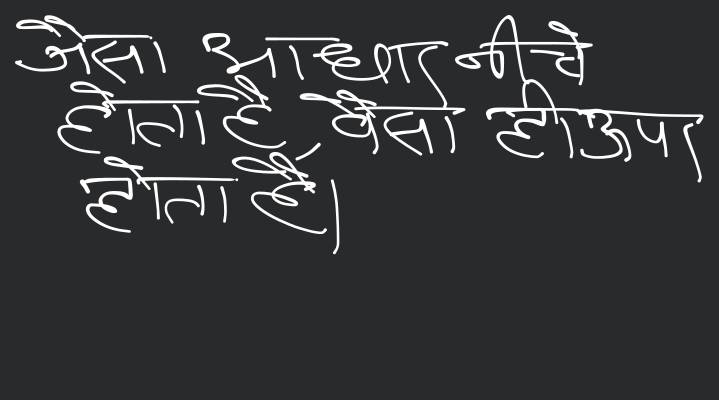 जैसा आधार नीचे
होता है, वैसा ही ऊपर
होता है।